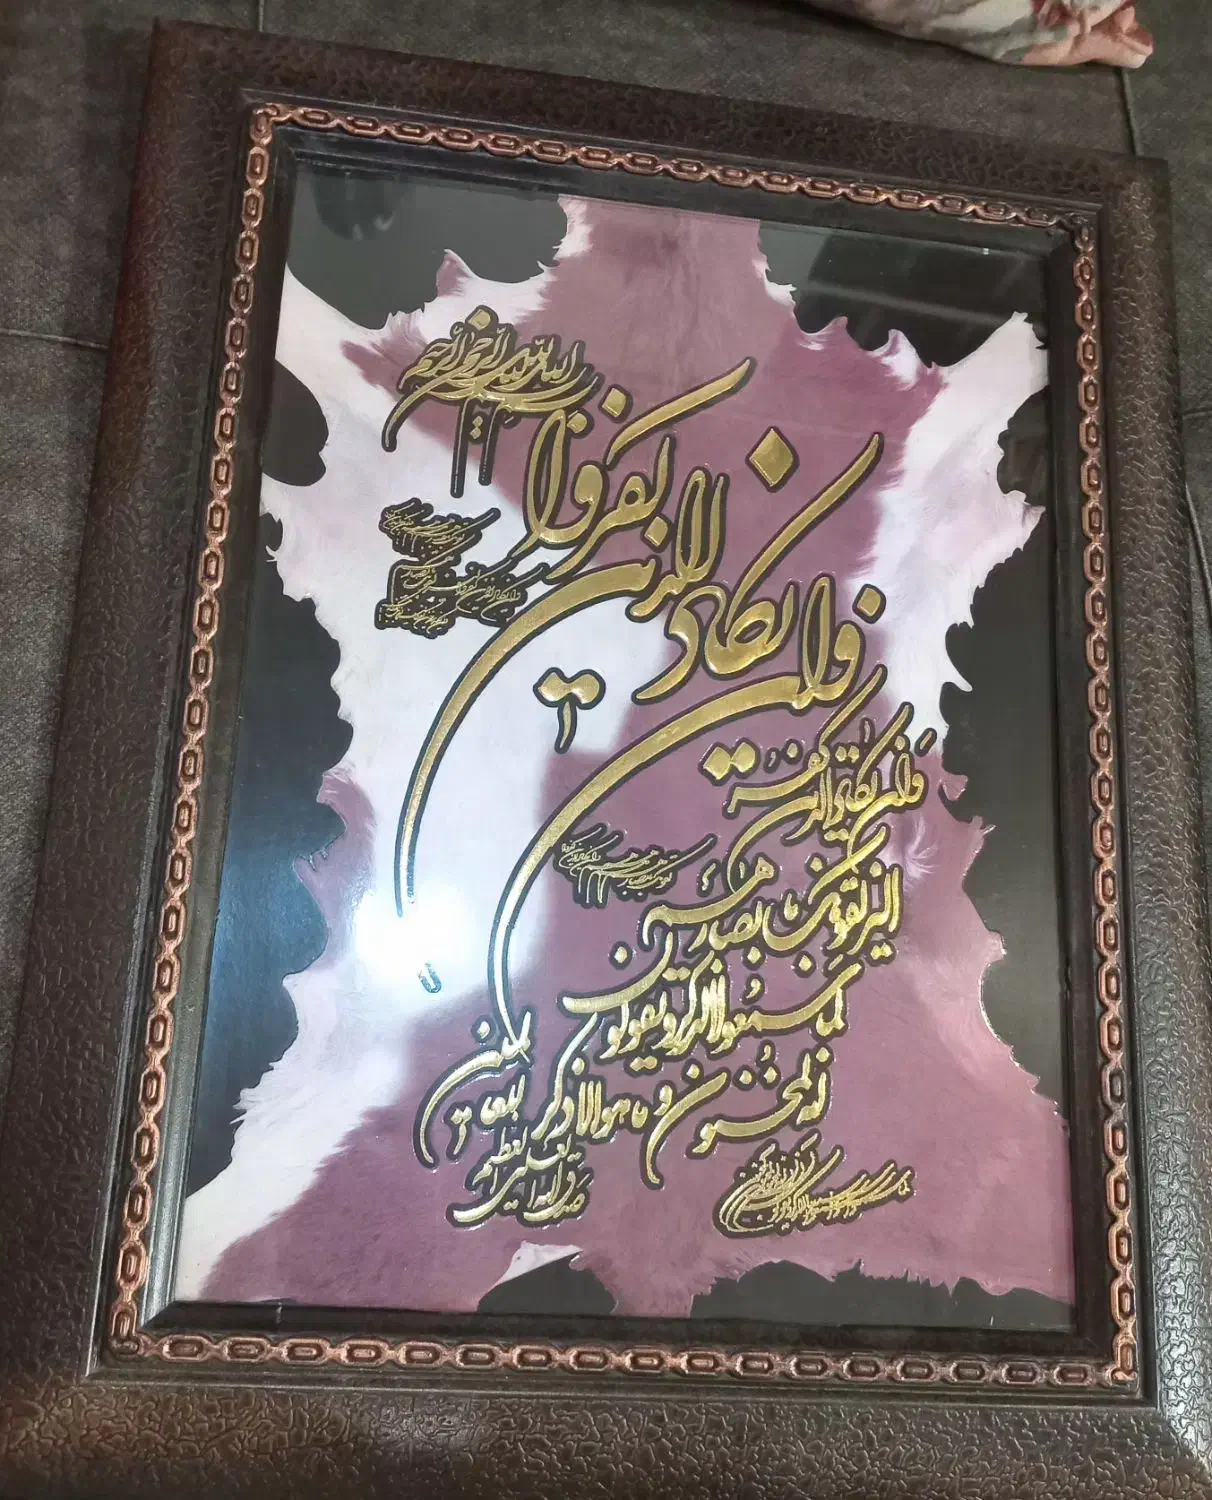 بسم الله الرحمن الرحیم
وان یکاد الذین کفروا
وَان یکاد الذین کفروا
لیزلقونک بابصارهم
لما سمعوا الذکر و یقولون
انه لمجنون و ما هو الا ذکر للعالمین
صدق الله العلی العظیم